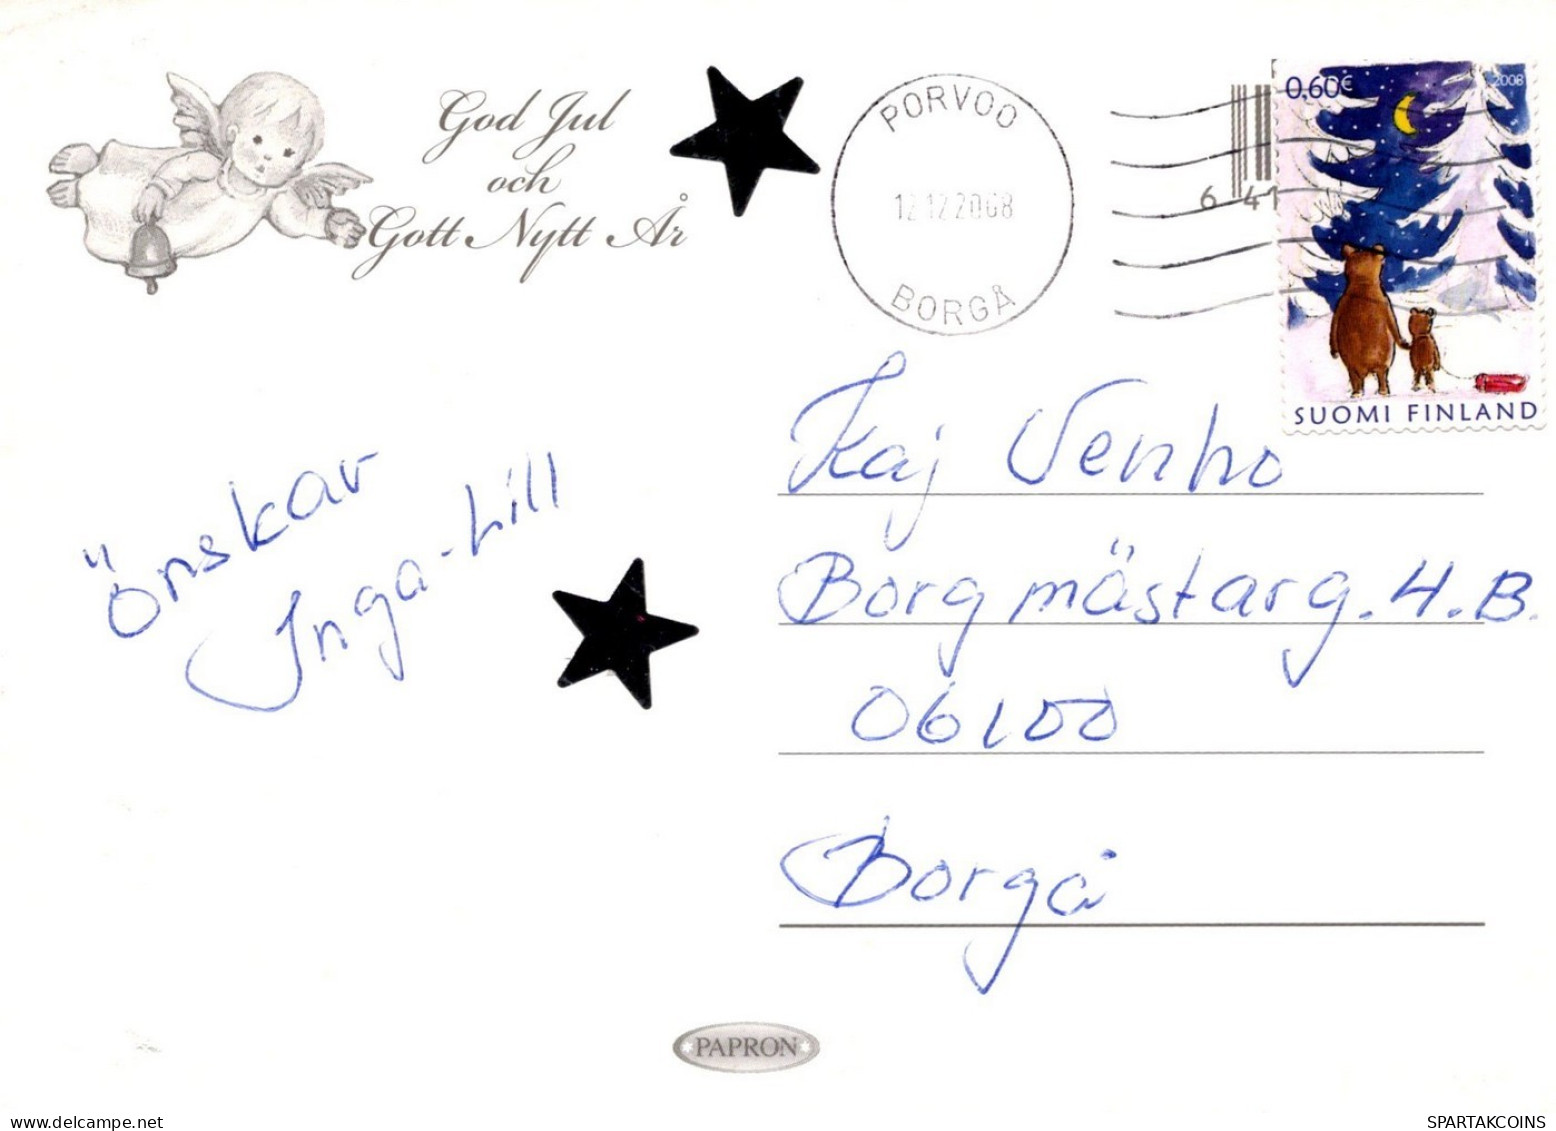 God Jul
och
Gott Nytt År
PORVOO
12.12.2008
BORGÅ
6 41
0,60€ 2008
SUOMI FINLAND
Önskar
Inga-Lill
Kaj Venho
Borgmästarg. 4. B.
06100
Borgå
PAPRON
SPARTAKCOINS